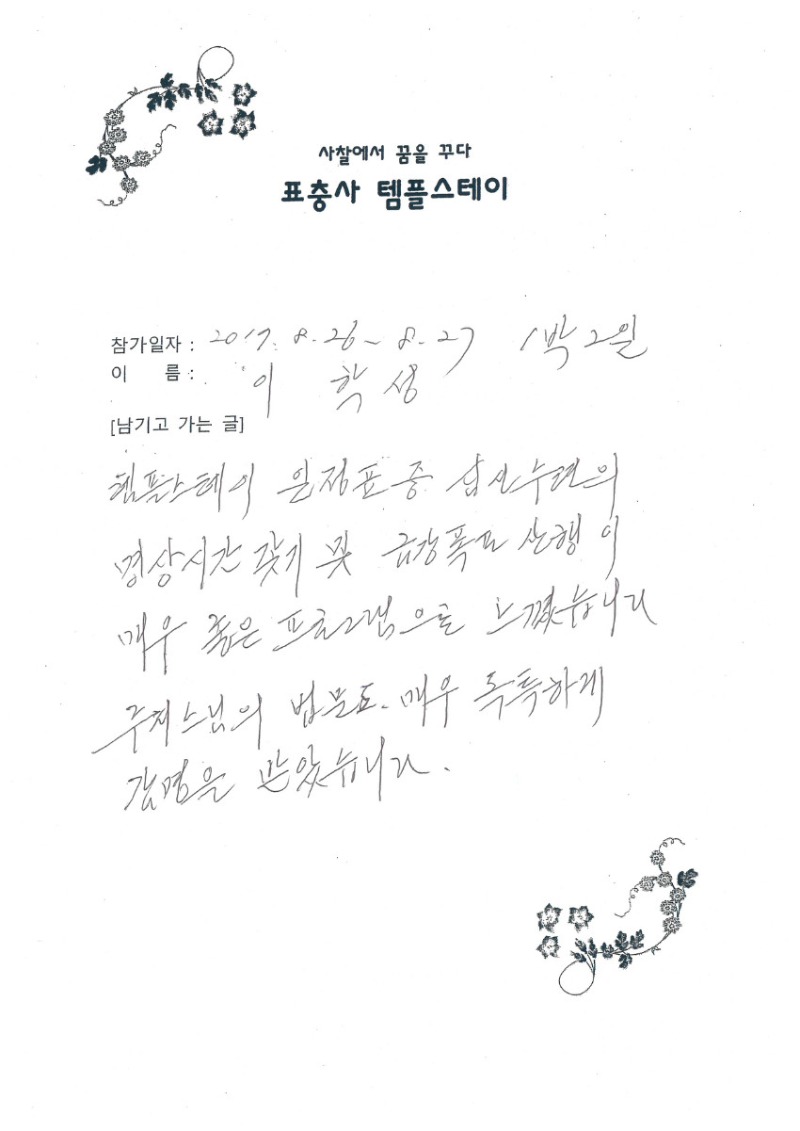 사찰에서 꿈을 꾸다
표충사 템플스테이
참가일자 : 2017. 8. 26 ~ 8. 27 1박 2일
이 름 : 이 학 성
[남기고 가는 글]
템플스테이 일정표 중 심신수련의
명상시간 갖기 및 금강폭포 산행이
매우 좋은 프로그램으로 느꼈습니다
주지스님의 법문도. 매우 독특하게
감명을 받았습니다.